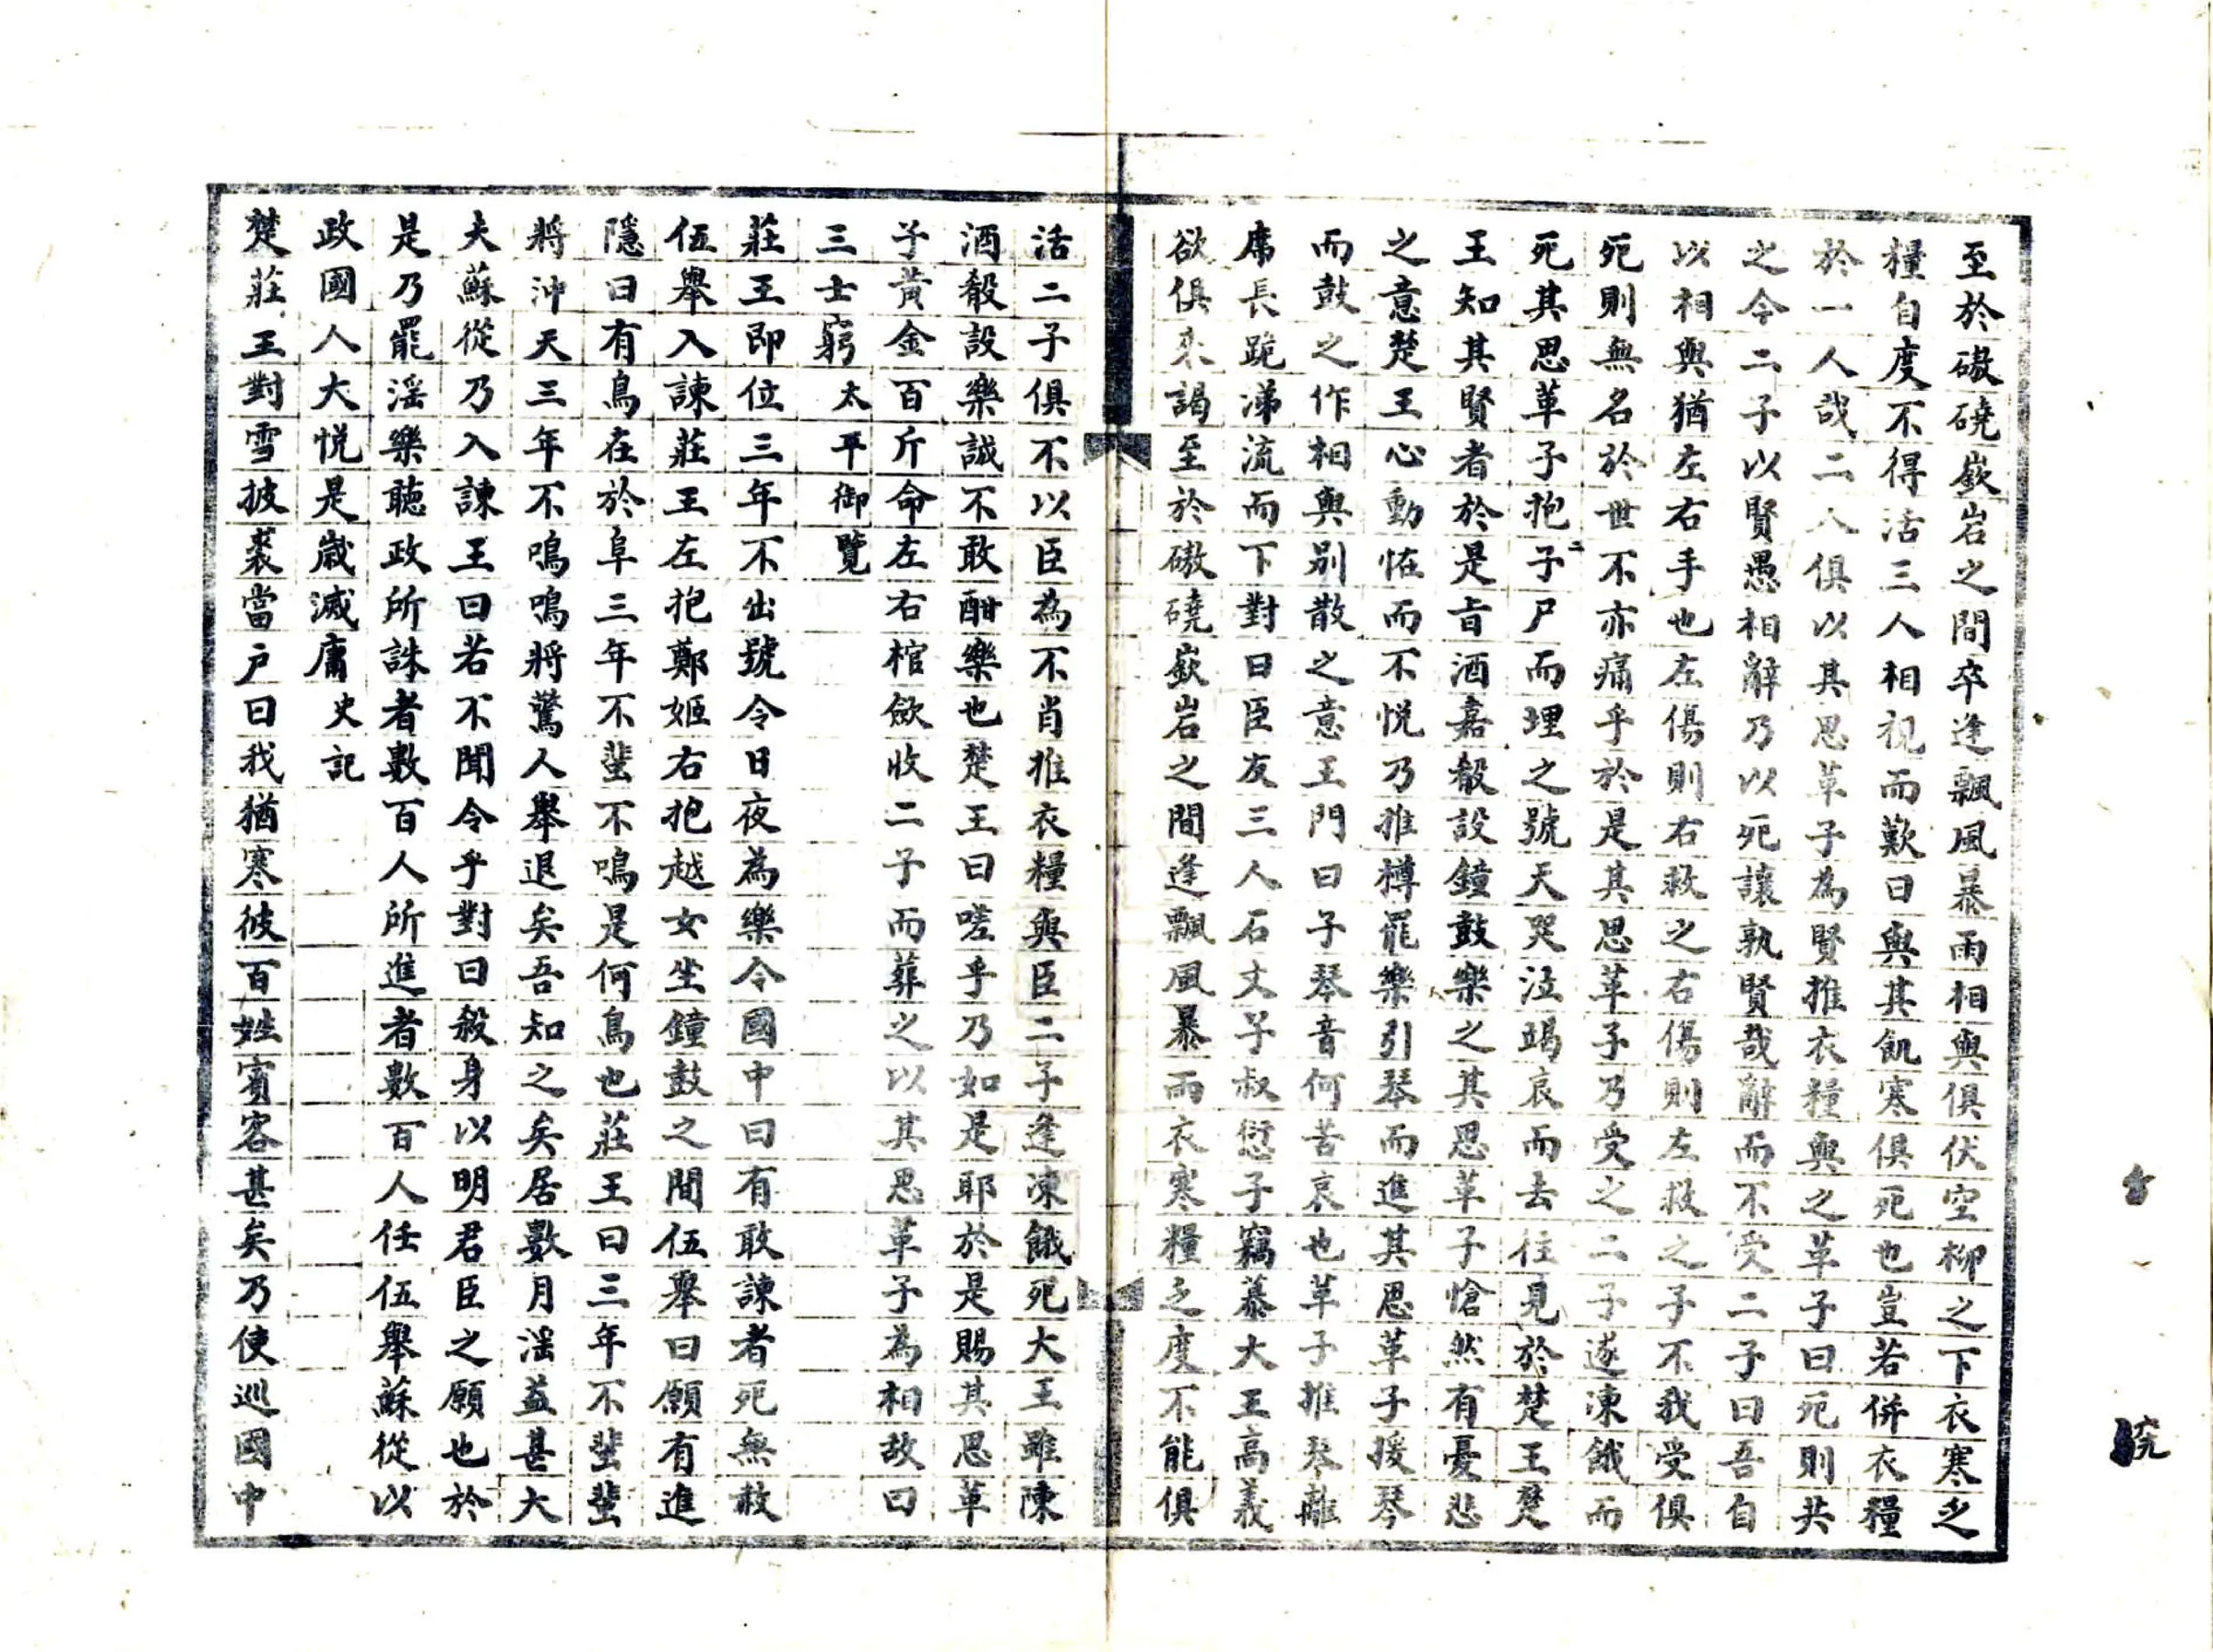 至於磝磽嶔岩之間卒逢飄風暴雨相與俱伏空柳之下衣寒乏
糧自度不得活三人相視而歎曰與其飢寒俱死也豈若併衣糧
於一人哉二人俱以其思革子為賢推衣糧與之革子曰死則共
之今二子以賢愚相辭乃以死讓孰賢哉辭而不受二子曰吾自
以相與猶左右手也左傷則右救之右傷則左救之子不我受俱
死則無名於世不亦痛乎於是其思革子乃受之二子遂凍餓而
死其思革子抱二子尸而埋之號天哭泣竭哀而去往見於楚王楚
王知其賢者於是旨酒嘉殽設鐘鼓樂之其思革子愴然有憂悲
之意楚王心動怪而不悅乃推樽罷樂引琴而進其思革子援琴
而鼓之作相與別散之意王門曰子琴音何苦哀也革子推琴離
席長跪涕流而下對曰臣友三人石文子叔愆子竊慕大王高義
欲俱來謁至於磝磽嶔岩之間逢飄風暴雨衣寒糧乏度不能俱
活二子俱不以臣為不肖推衣糧與臣二子逢凍餓死大王雖陳
酒殽設樂誠不敢酣樂也楚王曰嗟乎乃如是耶於是賜其思革
子黃金百斤命左右棺斂收二子而葬之以其思革子為相故曰
三士窮 太平御覽
莊王即位三年不出號令日夜為樂令國中曰有敢諫者死無赦
伍舉入諫莊王左抱鄭姬右抱越女坐鐘鼓之間伍舉曰願有進
隱曰有鳥在於阜三年不蜚不鳴是何鳥也莊王曰三年不蜚蜚
將沖天三年不鳴鳴將驚人舉退矣吾知之矣居數月淫益甚大
夫蘇從乃入諫王曰若不聞令乎對曰殺身以明君臣之願也於
是乃罷淫樂聽政所誅者數百人所進者數百人任伍舉蘇從以
政國人大悅是歲滅庸 史記
楚莊王對雪披裘當戶曰我猶寒彼百姓賓客甚矣乃使巡國中